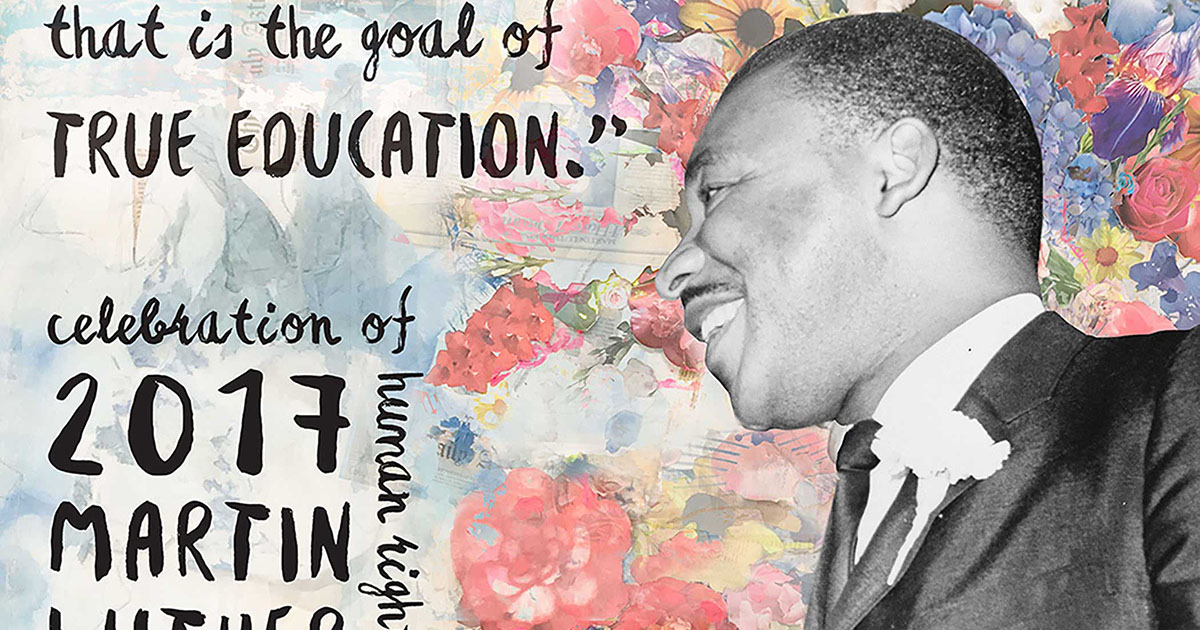 that is the goal of
TRUE EDUCATION.”
celebration of
2017
MARTIN
LUTHER
human righ